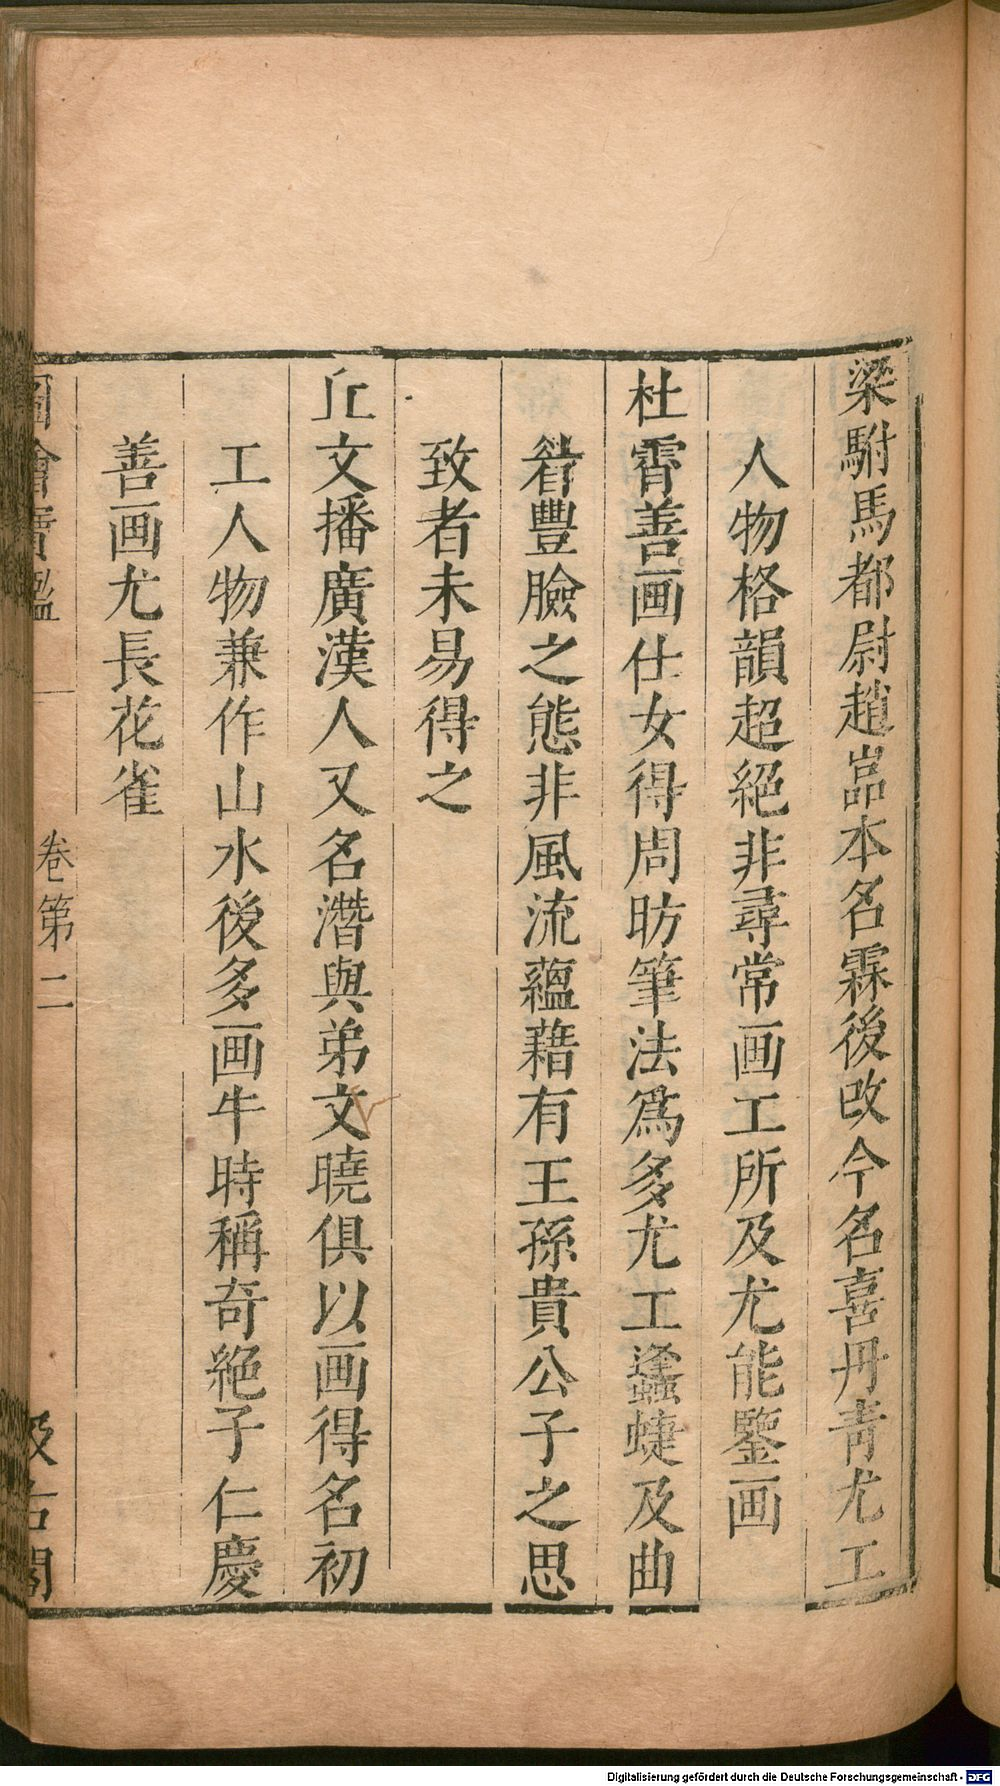 梁駙馬都尉趙嵓本名霖後改今名喜丹青尤工
人物格韻超絕非尋常画工所及尤能鑒画
杜霄善画仕女得周昉筆法爲多尤工蜂蜨及曲
眉豐臉之態非風流蘊藉有王孫貴公子之思
致者未易得之
丘文播廣漢人又名潛與弟文曉俱以画得名初
工人物兼作山水後多画牛時稱奇絕子仁慶
善画尤長花雀
圖繪寶鑑
卷第二
汲古閣
Digitalisierung gefördert durch die Deutsche Forschungsgemeinschaft - DFG